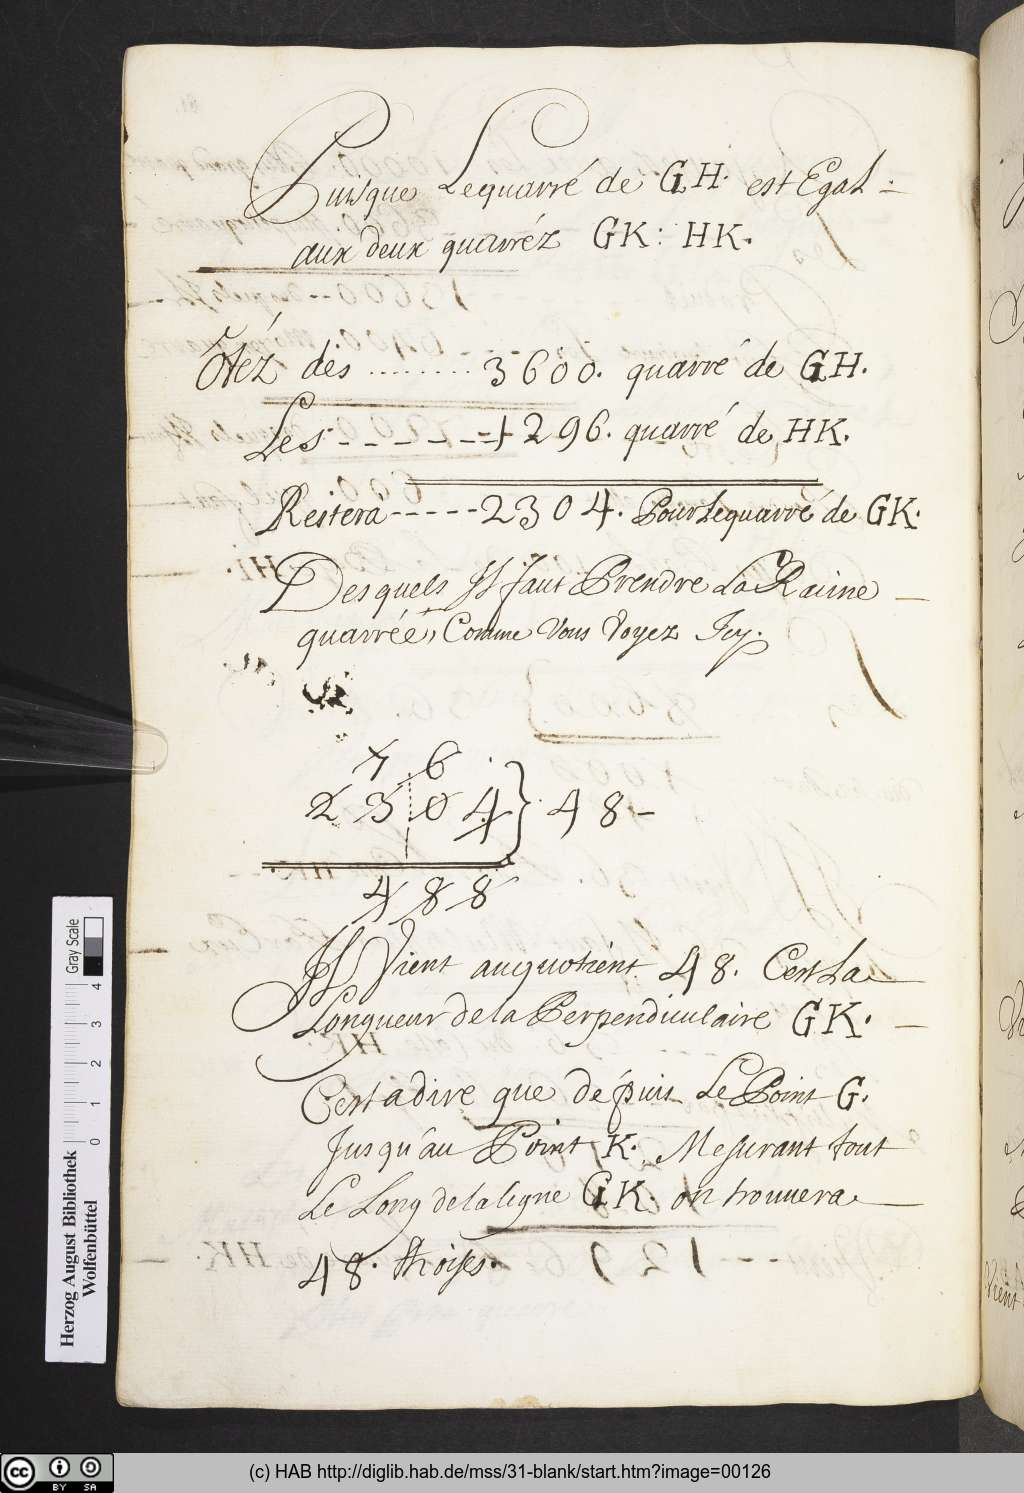 Puisque Lequarré de GH. est Egal
aux deux quarréz GK: HK.
Ôtéz des ........ 3600. quarré de GH.
Les - - - - - - 1296. quarré de HK.
Restera - - - - - 2304. Pour Lequarré de GK.
Desquels Il faut Prendre La Racine
quarréé,, Comme Vous Voyez Icy.
7 6
2 3 0 4 } 4 8 -
4 8 8
Il Vient auquotient 48. Cest La
Longueur dela Perpendiculaire GK.
Cest adire que dépuis Le Point G.
Jusqu'au Point K. Mesurant tout
Le Long delaligne GK. on trouuera
48. thoises.
Herzog August Bibliothek
Wolfenbüttel
Gray Scale
0 1 2 3 4
cc BY SA
(c) HAB http://diglib.hab.de/mss/31-blank/start.htm?image=00126